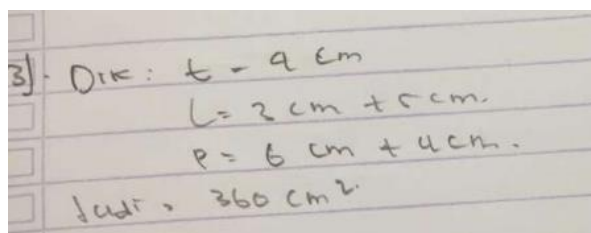 3). Dik : t = 9 cm
L = 3 cm + 5 cm.
P = 6 cm + 4 cm.
Jadi = 360 cm².